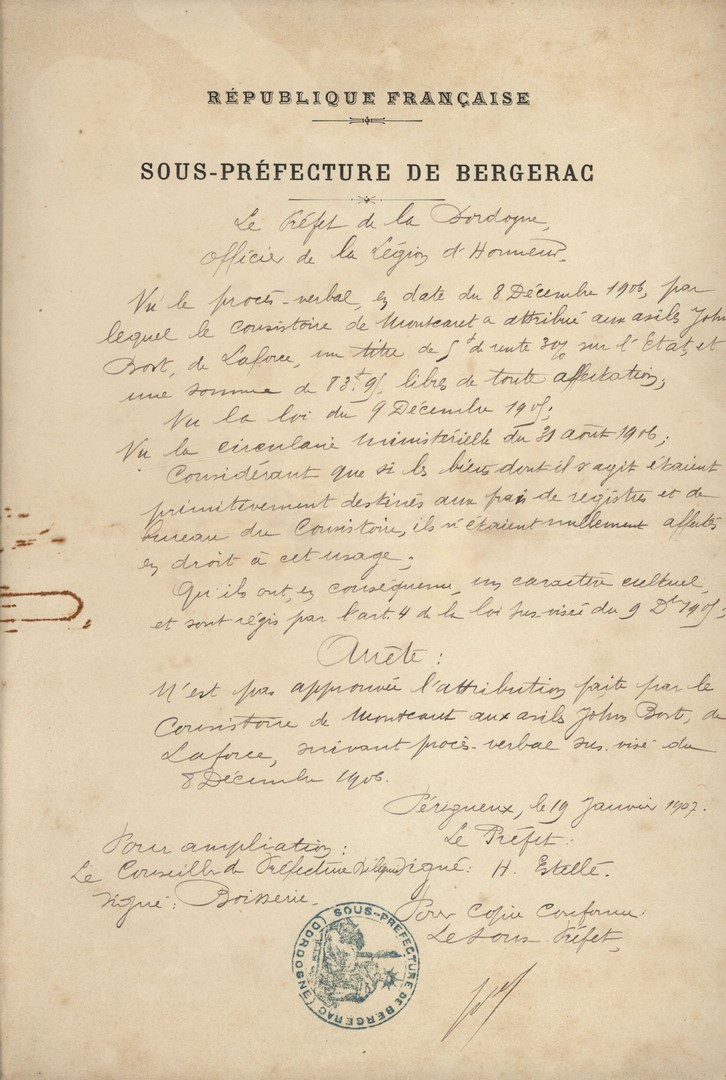 RÉPUBLIQUE FRANÇAISE
SOUS-PRÉFECTURE DE BERGERAC
Le Préfet de la Dordogne,
Officier de la Légion d'Honneur.
Vu le procès-verbal, en date du 8 Décembre 1906, par
lequel le Consistoire de Montcaret a attribué aux asiles John
Bost, de Laforce, un titre de 5f de rente 3% sur l'Etat, et
une somme de 83f,95 libres de toute affectation;
Vu la loi du 9 Décembre 1905;
Vu la circulaire ministérielle du 31 août 1906;
Considérant que si les biens dont il s'agit étaient
primitivement destinés aux frais de registres et de
bureau du Consistoire, ils n'étaient nullement affectés
en droit à cet usage;
Qu'ils ont, en conséquence, un caractère cultuel,
et sont régis par l'art. 4 de la loi sus-visée du 9 Dbre 1905;
Arrête:
N'est pas approuvée l'attribution faite par le
Consistoire de Montcaret aux asiles John Bost, de
Laforce, suivant procès-verbal sus-visé du
8 Décembre 1906.
Périgueux, le 19 Janvier 1907.
Le Préfet:
Signé: H. Estellé.
Pour ampliation:
Le Conseiller de Préfecture Délégué
Signé: Boisserie.
Pour copie conforme:
Le Sous Préfet,
SOUS-PRÉFECTURE DE BERGERAC (DORDOGNE)